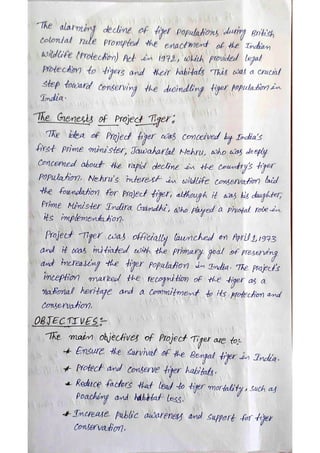 The alarming decline of tiger populations during British
colonial rule prompted the enactment of the Indian
Wildlife (Protection) Act in 1972, which provided legal
protection to tigers and their habitats This was a crucial
step toward conserving the dwindling tiger population in
India.
The Genesis of Project Tiger:
The idea of Project tiger was conceived by India's
first prime minister, Jawaharlal Nehru, who was deeply
concerned about the rapid decline in the country's tiger
population. Nehru's interest in wildlife conservation laid
the foundation for project tiger, although it was his daughter,
Prime Minister Indira Gandhi, who played a pivotal role in
its implementation.
Project Tiger was officially launched on April 1, 1973
and it was initiated with the primary goal of preserving
and increasing the tiger population in India. The project's
inception marked the recognition of the tiger as a
national heritage and a commitment to its protection and
conservation.
OBJECTIVES:-
The main objectives of Project Tiger are to:-
+ Ensure the survival of the Bengal tiger in India.
+ Protect and conserve tiger habitats.
+ Reduce factors that lead to tiger mortality, such as
Poaching and habitat loss.
+ Increase public awareness and support for tiger
conservation.